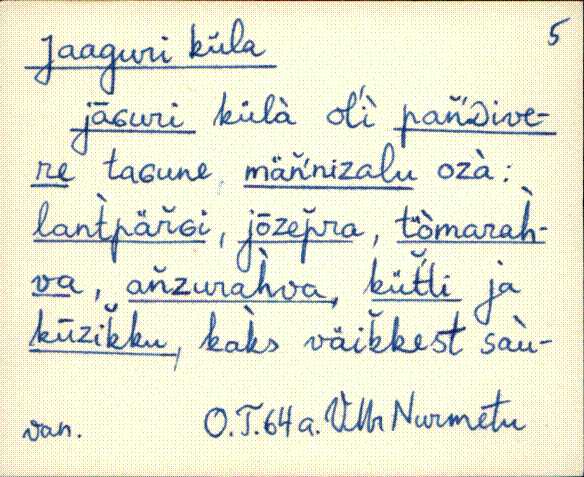 5
Jaaguri küla
jāɢuri külà oĺì pań̆ᴅive-
re taɢune, mäń̆nizalu ozà:
lant̀pär̆ɢi, jōzep̆ra, tüòmarah̀-
va, ań̆zurah̀va, küt̆́li ja
kūzik̆ku, kak̀s väik̆kest saù-
van. O.T.64 a. VMr Nurmetu